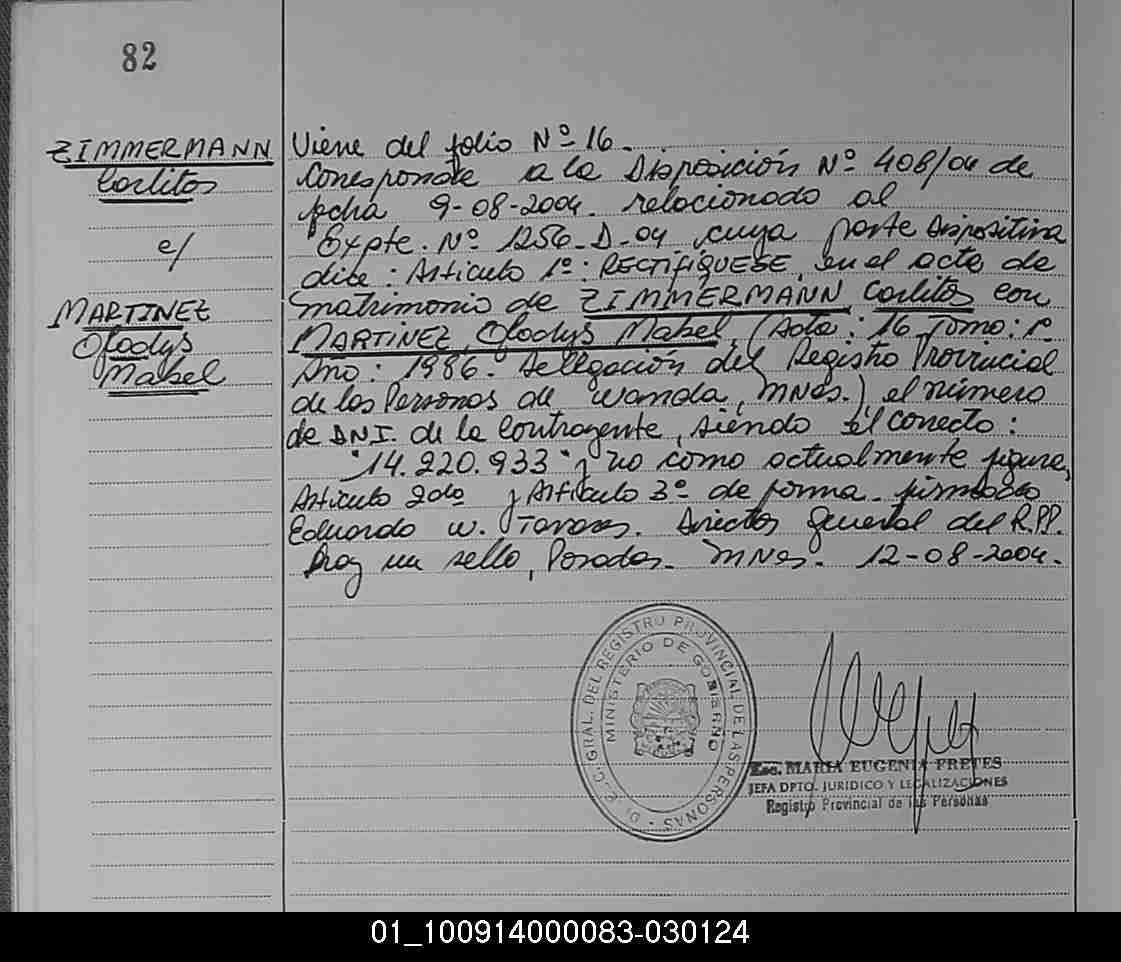 82
ZIMMERMANN
Carlitos
c/
MARTINEZ
Gladys
Mabel
Viene del folio Nº 16.
Corresponde a la Disposición Nº 408/04 de
fecha 9-08-2004. relacionado al
Expte. Nº 1256-D-04 cuya parte Dispositiva
dice: Articulo 1º: RECTIFIQUESE, en el acta de
matrimonio de ZIMMERMANN Carlitos con
MARTINEZ, Gladys Mabel, (Acta: 16 Tomo: 1º
Año: 1986. Dellegación del Registro Provincial
de las Personas de Wanda, MNes.) el número
de DNI. de la Contrayente, siendo el correcto:
"14.220.933" y no como actualmente figura,
Articulo 2do y Articulo 3º de forma. firmado
Eduardo W. Director General del R.PP.
Hay un sello, Posadas. MNes. 12-08-2004.
DIREC. GRAL. DEL REGISTRO PROVINCIAL DE LAS PERSONAS
MINISTERIO DE GOBIERNO
Esc. MARIA EUGENIA FRETES
JEFA DPTO. JURIDICO Y LEGALIZACIONES
Registro Provincial de las Personas
01_100914000083-030124